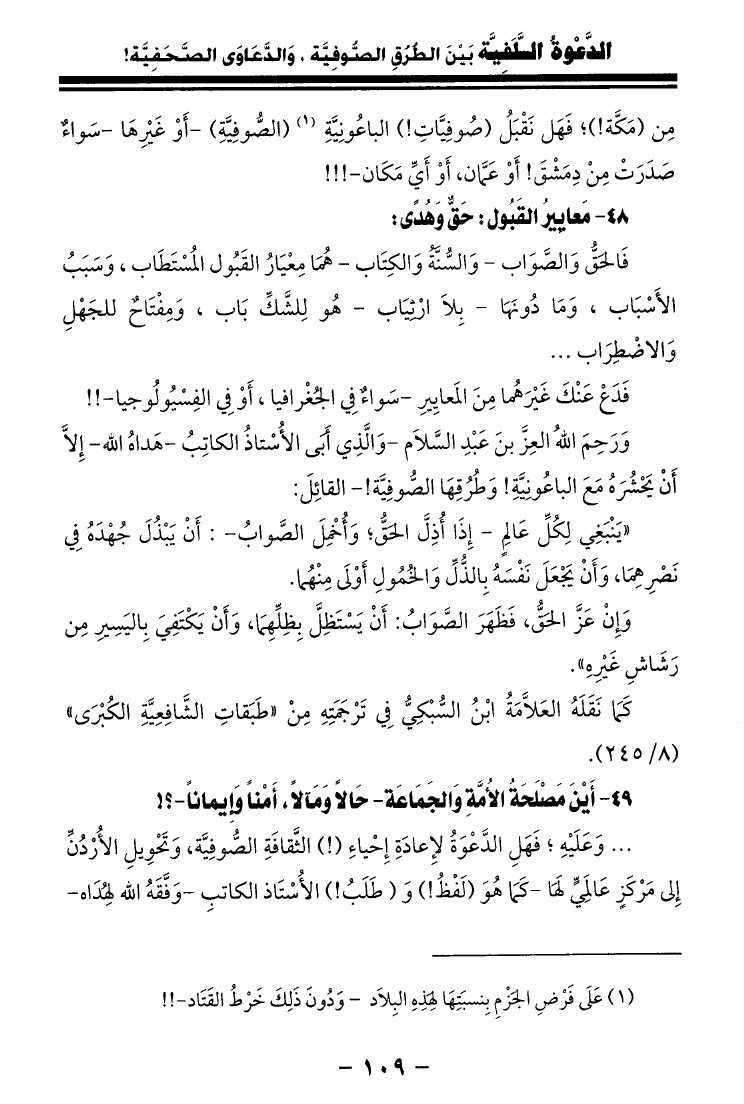 الدَّعْوةُ السَّلَفيَّة بَيْنَ الطُّرُقِ الصُّوفِيَّة ، وَالدَّعَاوَى الصَّحَفِيَّة!
مِن (مَكَّة!)؛ فَهَل نَقْبَلُ (صُوفِيَّاتِ!) الباعُونِيَّةِ (١) (الصُّوفِيَّةِ) -أَوْ غَيْرِهَا -سَواءٌ
صَدَرَتْ مِنْ دِمَشْقَ! أَوْ عَمَّان، أَوْ أَيِّ مَكَان-!!!
٤٨- مَعاييرُ القَبُول: حَقٌّ وَهُدًى:
فَالحَقُّ وَالصَّوَاب - وَالسُّنَّةُ وَالكِتَاب - هُمَا مِعْيَارُ القَبُول المُسْتَطَاب ، وَسَبَبُ
الأَسْبَاب ، وَمَا دُونَهَا - بِلاَ ارْتِيَاب - هُو لِلشَّكِّ بَاب ، وَمِفْتَاحٌ للجَهْلِ
وَالاضْطِرَاب ...
فَدَعْ عَنْكَ غَيْرَهُما مِنَ المَعاييرِ -سَواءٌ في الجُغْرافيا ، أَوْ في الفِسْيُولُوجيا-!!
وَرَحِمَ اللهُ العِزَّ بنَ عَبْدِ السَّلاَم -وَالَّذِي أَبَى الأُسْتاذُ الكاتِبُ -هَداهُ الله- إِلاَّ
أَنْ يَحْشُرَهُ مَعَ الباعُونِيَّةِ! وَطُرُقِهَا الصُّوفِيَّة!- القائِلَ:
«يَنْبَغِي لِكُلِّ عَالِمٍ - إِذَا أُذِلَّ الحَقُّ؛ وَأُخْمِلَ الصَّوابُ- : أَنْ يَبْذُلَ جُهْدَهُ فِي
نَصْرِهِمَا، وَأَنْ يَجْعَلَ نَفْسَهُ بِالذُّلِّ وَالخُمُولِ أَوْلَى مِنْهُما.
وَإِنْ عَزَّ الحَقُّ، فَظَهَرَ الصَّوَابُ: أَنْ يَسْتَظِلَّ بِظِلِّهِمَا، وَأَنْ يَكْتَفِيَ بِاليَسِيرِ مِن
رَشَاشِ غَيْرِهِ».
كَمَا نَقَلَهُ العَلاَّمَةُ ابْنُ السُّبْكِيُّ فِي تَرْجَمَتِهِ مِنْ «طَبَقاتِ الشَّافِعِيَّةِ الكُبْرَى»
(٨/ ٢٤٥).
٤٩- أَيْنَ مَصْلَحَةُ الأُمَّةِ وَالجَمَاعَة- حَالاً وَمَآلاً، أَمْناً وَإِيماناً-؟!
... وَعَلَيْهِ ؛ فَهَلِ الدَّعْوَةُ لإِعادَةِ إِحْياءِ (!) الثَّقافَةِ الصُّوفِيَّة، وَتَحْوِيلِ الأُرْدُنِّ
إِلى مَرْكَزٍ عالَمِيٍّ لَهَا -كَمَا هُوَ (لَفْظُ!) وَ ( طَلَبُ!) الأُسْتاذ الكاتبِ -وَفَّقَهُ الله لِهُدَاه-
(١) عَلَى فَرْضِ الجَزْمِ بِنسبَتِهَا لِهَذِهِ البِلاَد - وَدُونَ ذَلِكَ خَرْطُ القَتَاد-!!
- ١٠٩ -